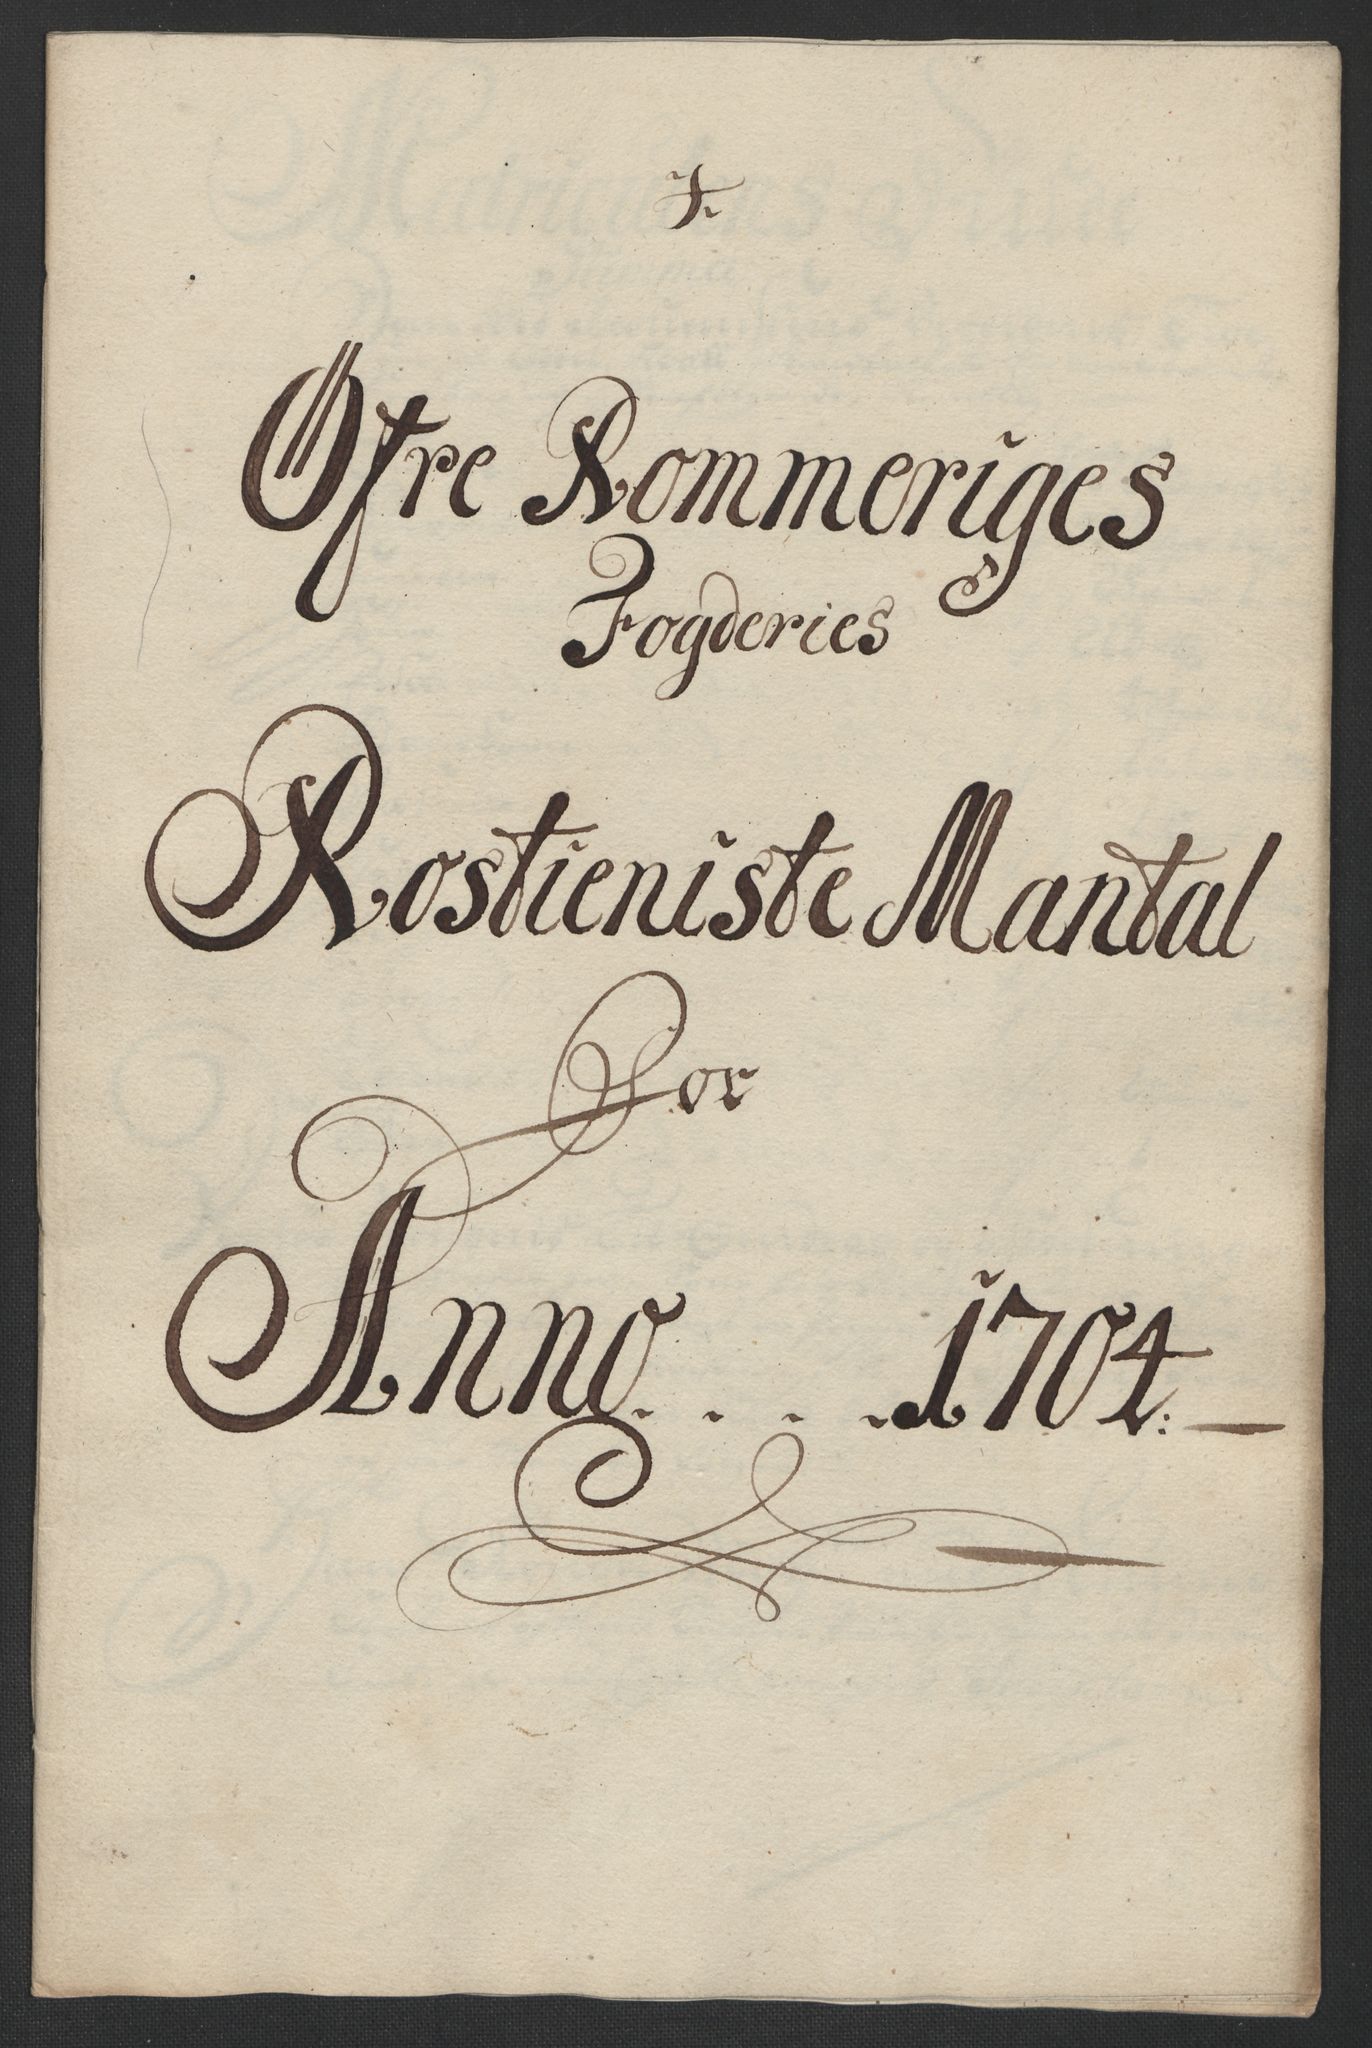 Øfre Rommeriges
Fogderies
Rostieniste Mantal
For
Anno . . . . 1704.